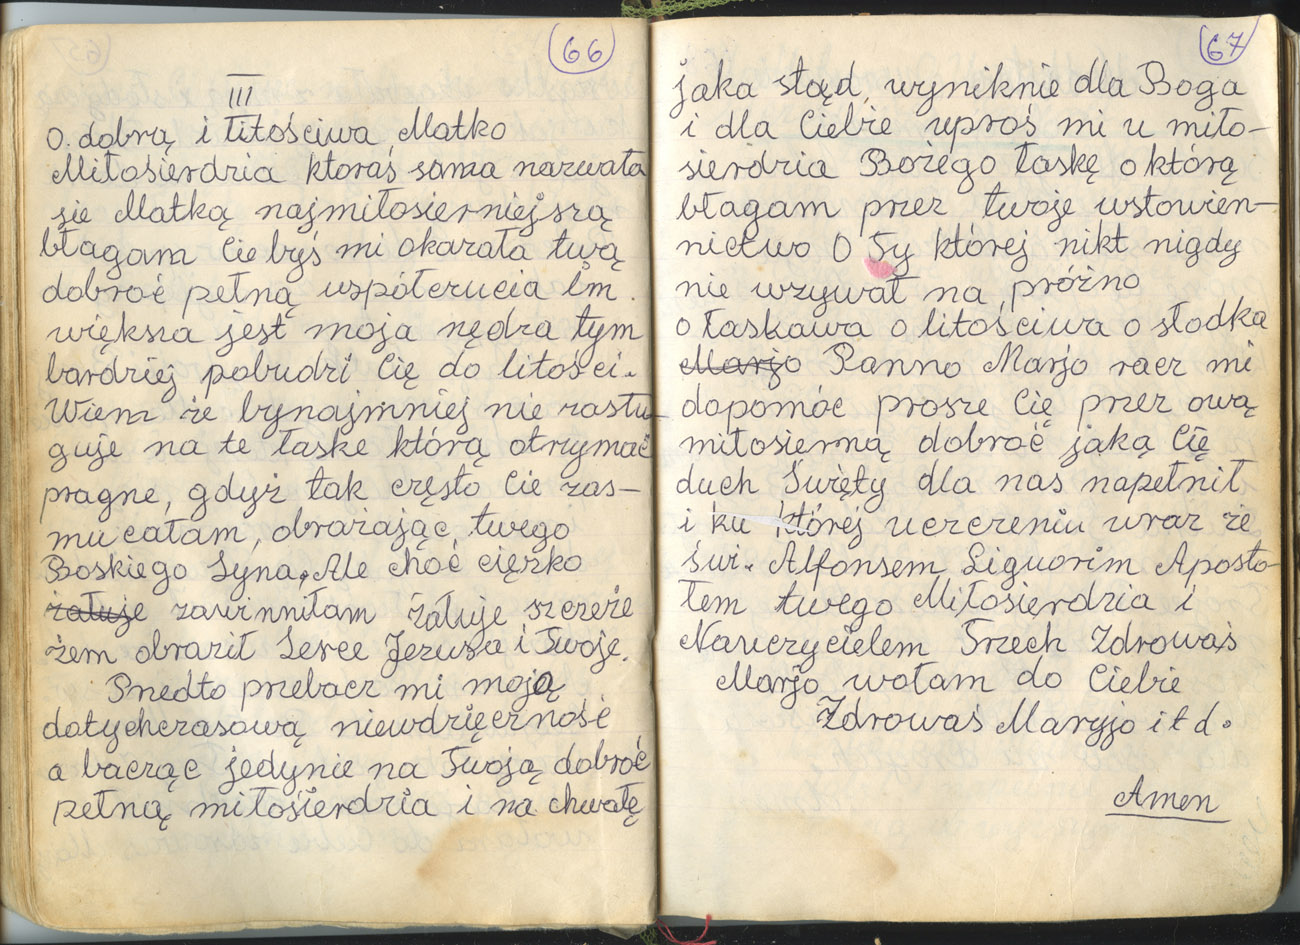 66
III
O. dobrą i litościwa Matko
Miłosierdzia któraś sama nazwała
się Matką najmiłosierniejszą
błagam Cie byś mi okazała twą
dobroć pełną współczucia Im.
większa jest moja nędza tym
bardziej pobudzi Cię do litości.
Wiem że bynajmniej nie zasłu
guje na te łaske którą otrzymać
pragne, gdyż tak często Cie zas-
mucałam, obrażając, twego
Boskiego Syna. Ale choć ciężko
żałuje zawinniłam żałuje szczeże
żem obraził Serce Jezusa i Twoje.
Przedto przebacz mi moją
dotychczasową niewdzięczność
a bacząc jedynie na Twoją dobroć
pełną miłosierdzia i na chwałę
67
jaka stąd, wyniknie dla Boga
i dla Ciebie uproś mi u miło-
sierdzia Bożego łaskę o którą
błagam przez twoje wstowien-
nictwo O Ty której nikt nigdy
nie wzywał na próżno
o łaskawa o litościwa o słodka
Marjo Panno Marjo racz mi
dopomóc prosze Cię przez ową
miłosierną dobroć jaką Cię
duch Święty dla nas napełnił
i ku której uczczeniu wraz ze
świ. Alfonsem Liguorim Aposto-
łem twego Miłosierdzia i
Nauczycielem Trzech Zdrowaś
Marjo wołam do Ciebie
Zdrowaś Maryjo i t d.
Amen